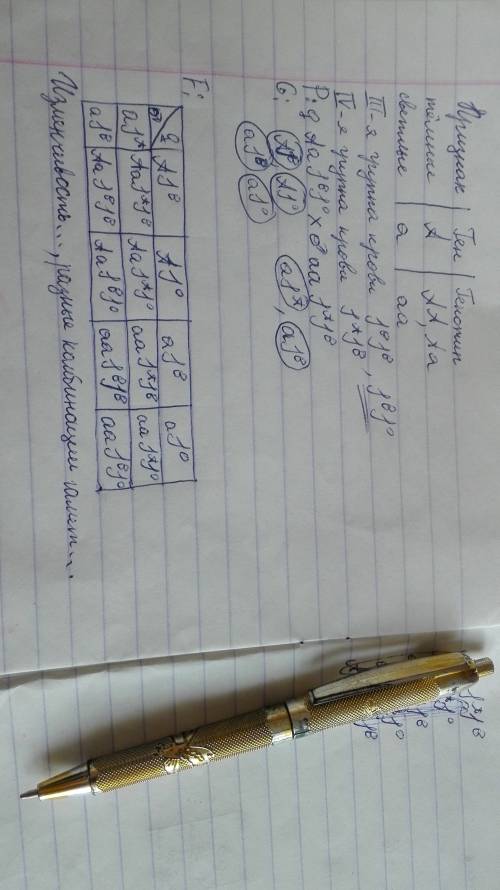 Признак | Ген | Генотип
тёмные | A | AA, Aa
светлые | a | aa
III-я группа крови JᴮJᴮ, JᴮJ⁰
IV-я группа крови JᴬJᴮ
P: ♀ Aa JᴮJ⁰ × ♂ aa JᴬJᴮ
G: AJᴮ AJ⁰ aJᴬ, aJᴮ
aJᴮ aJ⁰
F:
♂ ♀ | AJᴮ | AJ⁰ | aJᴮ | aJ⁰
aJᴬ | Aa JᴬJᴮ | Aa JᴬJ⁰ | aa JᴬJᴮ | aa JᴬJ⁰
aJᴮ | Aa JᴮJᴮ | Aa JᴮJ⁰ | aa JᴮJᴮ | aa JᴮJ⁰
Изменчивость..., разные комбинации гамет...